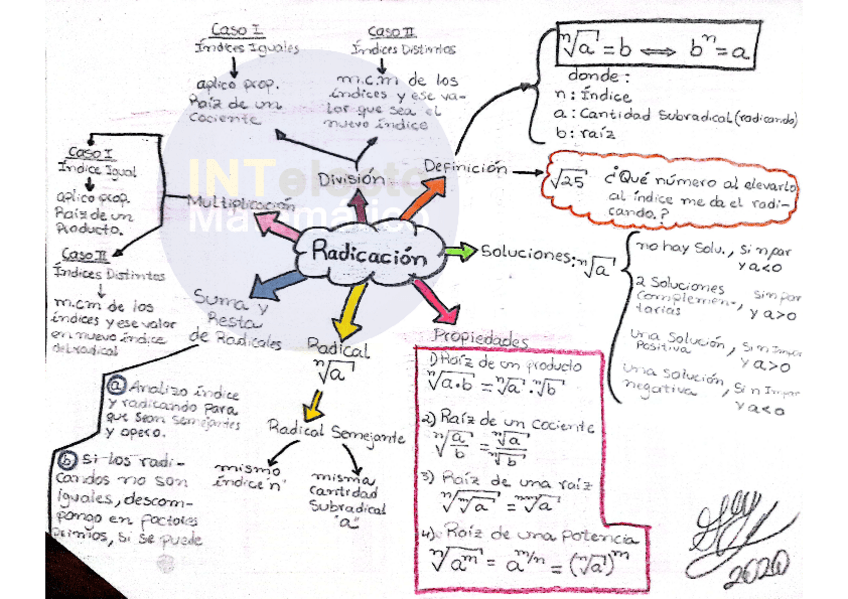 Caso I
Índices Iguales
aplico prop.
Raíz de un
Cociente
Caso II
Índices Distintos
m.c.m de los
índices y ese va-
lor que sea el
nuevo índice
División
Definición
ⁿ√a = b ⟺ bⁿ = a
donde:
n: Índice
a: Cantidad Subradical (radicando)
b: raíz
√25 ¿Qué número al elevarlo
al índice me da el radi-
cando.?
Caso I
Índice Igual
aplico prop.
Raíz de un
Producto.
Caso II
Índices Distintos
m.c.m de los
índices y ese valor
en nuevo índice
del radical
Multiplicación
INTelecto
Matemático
Radicación
Soluciones: ⁿ√a
no hay Solu., Si n par
y a<0
2 Soluciones Si n par
Complemen-, y a>0
tarias
una Solución, Si n Impar
Positiva y a>0
una Solución, Si n Impar
negativa y a<0
Suma y
Resta
de Radicales
a Analizo índice
y radicando para
que sean semejantes
y opero.
b Si los radi-
candos no son
iguales, descom-
pongo en factores
primos, si se puede
Radical
ⁿ√a
Radical Semejante
mismo
índice "n"
misma
cantidad
Subradical
"a"
Propiedades
1) Raíz de un producto
ⁿ√a·b = ⁿ√a · ⁿ√b
2) Raíz de un Cociente
ⁿ√(a/b) = ⁿ√a / ⁿ√b
3) Raíz de una raíz
ⁿ√ᵐ√a = ⁿᵐ√a
4) Raíz de una potencia
ⁿ√aᵐ = a^(m/n) = (ⁿ√a)ᵐ
2020